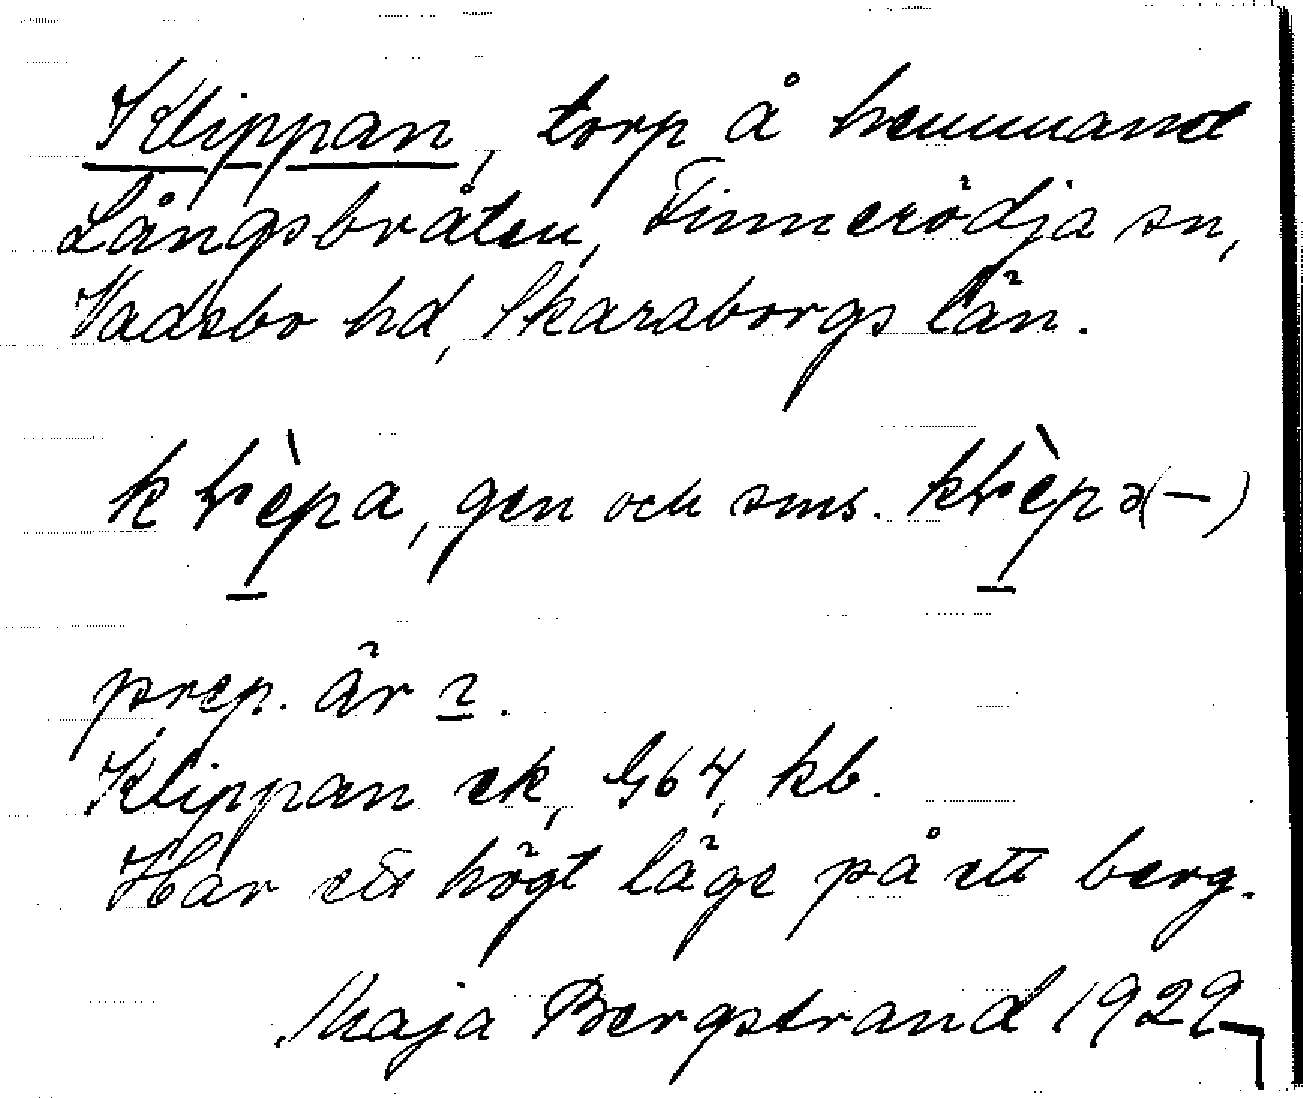 Klippan, torp å hemmanet
Långsbråten, Finnerödja sn,
Vadsbo hd, Skaraborgs län.
klèpa, gen och sms. klèpə(–)
prep. är
Klippan ek, G64, kb.
Har ett högt läge på ett berg.
Maja Bergstrand 1929